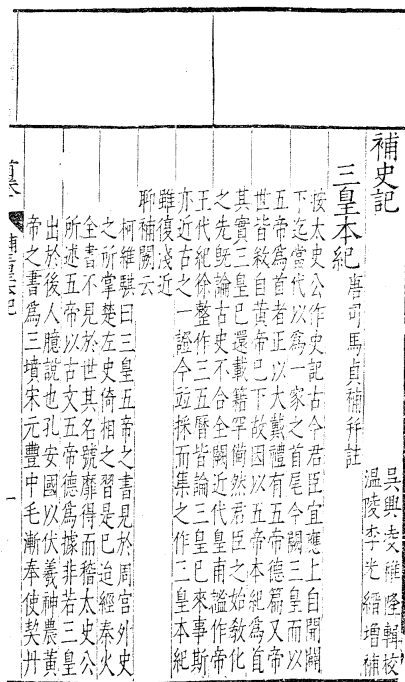 補史記
吳興凌稚隆輯校
溫陵李光縉增補
三皇本紀
唐司馬貞補并註
按太史公作史記古今君臣宜應上自開闢
下迄當代以爲一家之首尾今闕三皇而以
五帝爲首者正以大戴禮有五帝德篇又帝
世皆敘自黃帝已下故因以五帝本紀爲首
其實三皇已還載籍罕備然君臣之始敎化
之先既論古史不合全闕近代皇甫謐作帝
王代紀徐整作三五曆皆論三皇已來事斯
亦近古之一證今竝採而集之作三皇本紀
雖復淺近
聊補闕云
柯維騏曰三皇五帝之書見於周官外史
之所掌楚左史倚相之習是已迨經秦火
全書不見於世其名號靡得而稽太史公
所述五帝以古文五帝德爲據非若三皇
出於後人臆說也孔安國以伏羲神農黃
帝之書爲三墳宋元豐中毛漸奉使契丹
一